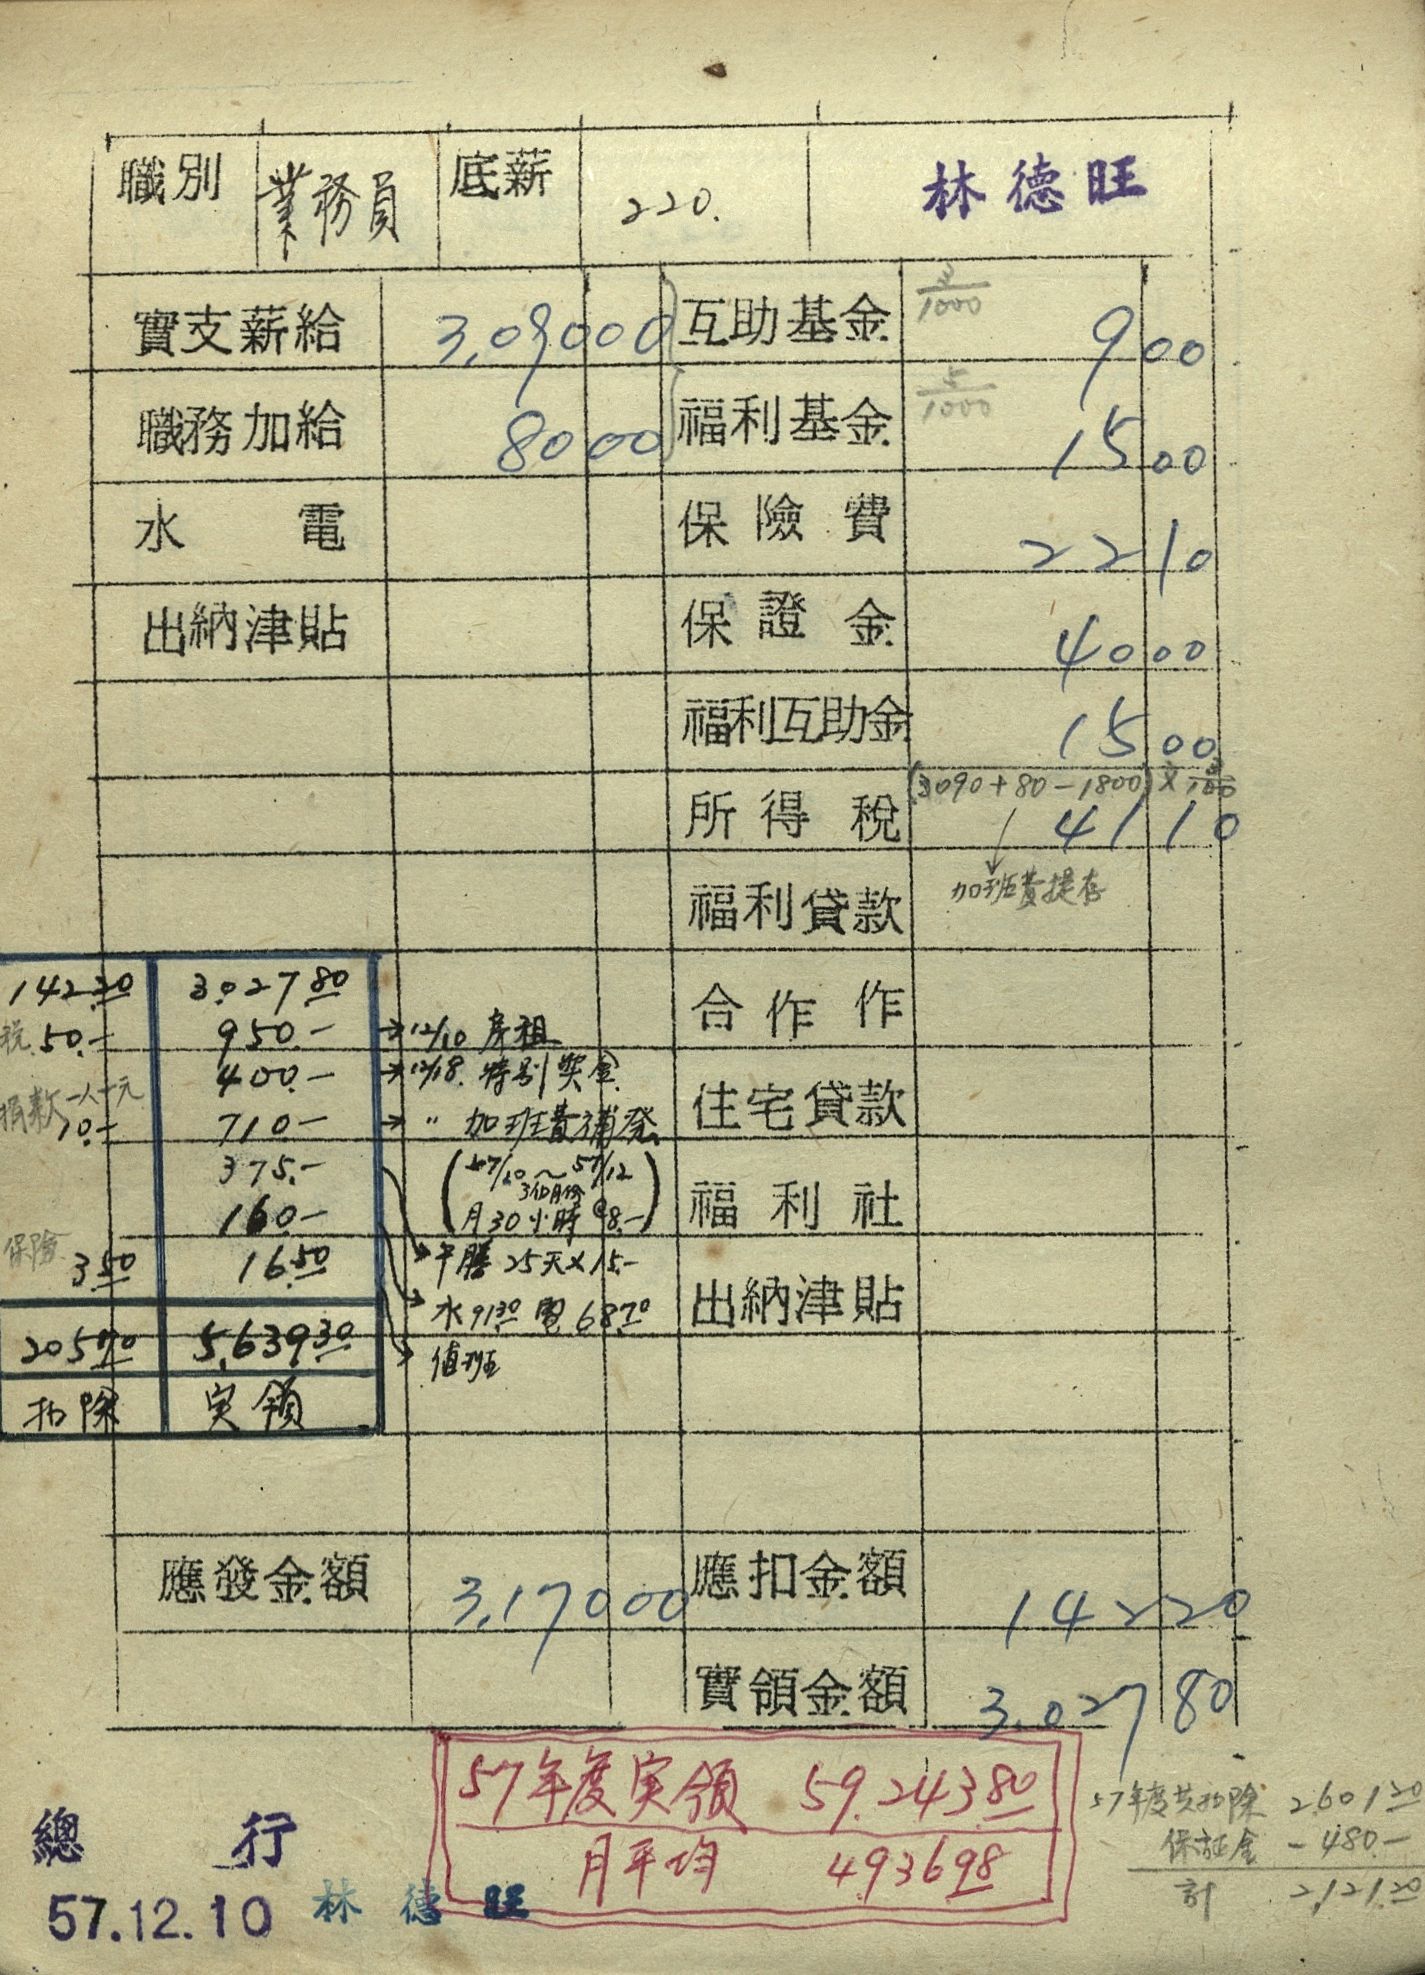 職別 業務員 底薪 220. 林德旺
實支薪給 3,090 00 互助基金 3/1000 9 00
職務加給 80 00 福利基金 5/1000 15 00
水電 保險費 22 10
出納津貼 保證金 40 00
福利互助金 15 00
(3090+80-1800)×3/100
所得稅 41 10
福利貸款 加班費提存
合作
住宅貸款
福利社
出納津貼
142.20 3.027 80
稅 50.- 950.- → 12/10 房租
400.- → 12/18. 特別奬金
捐款 一人一元 10.- 710.- → 〃 加班費補発
(57/10 ~ 57/12
3個月份
月30小時 @8.-)
375.- 午膳 25天×15.-
160.- 水 91 30 電 68 70
保險 3 50 16.50 值班
205 70 5,639 30
扣除 実領
應發金額 3,170 00 應扣金額 142 20
實領金額 3.027 80
57年度実領 59.243 80
月平均 4.936 98
57年度共扣除 2,601 20
保証金 -480.-
計 2,121 20
總行
57.12.10 林德旺